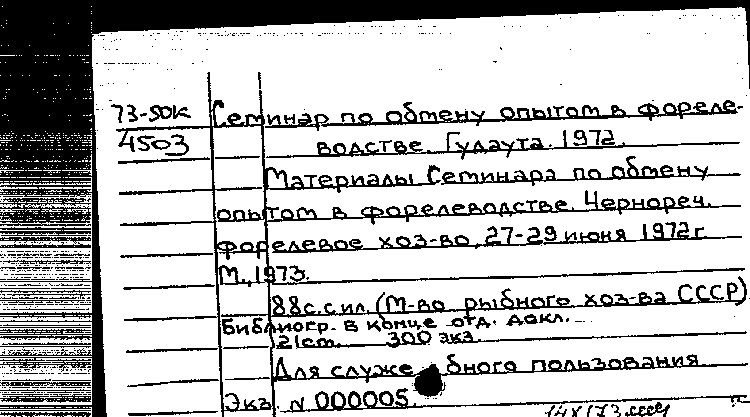 73-50к
4503
Семинар по обмену опытом в фореле-
водстве. Гудаута. 1972.
Материалы Семинара по обмену
опытом в форелеводстве. Чернореч.
форелевое хоз-во, 27-29 июня 1972г
М., 1973.
88с. с ил. (М-во рыбного хоз-ва СССР)
Библиогр. в конце отд. докл.
21см. 300 экз.
Для служебного пользования
Экз. N 000005.